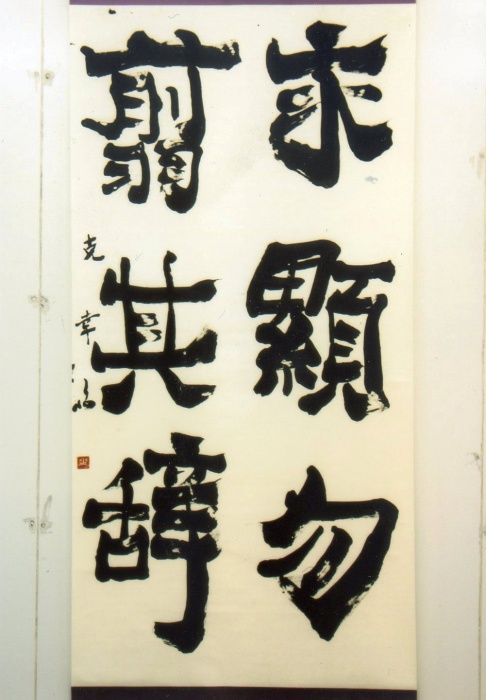 求顯勿
翦其辞
克幸